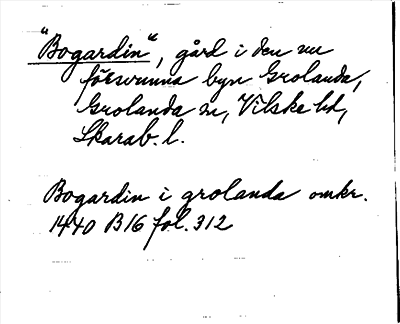 "Bogardin", gård i den nu
försvunna byn Grolanda,
Grolanda sn, Vilske hd,
Skarab. l.
Bogardin i grolanda omkr.
1440 B16 fol. 312